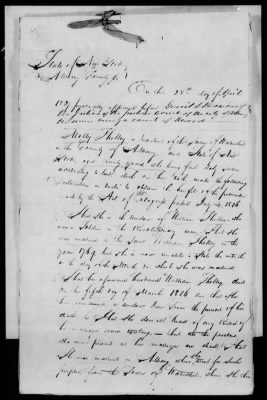 State of New York
Albany County ss
On this 28th day of April
1837 personally appeared before
the Justices of the Justices Court of the city of Albany
the same being a court of Record
Molly Shelley a resident of the town of
in the County of Albany and State of New
York aged ninety years who being first duly sworn
according to law doth on her oath make the following
declaration in order to obtain the benefit of the provision
made by the Act of Congress passed July 4th 1836
That she is the widow of William Shelley who
was a Soldier in the Revolutionary war, That she
was married to the said William Shelley in the
year 1769 but she is now unable to state the month
or the day of the month on which she was married
That her aforesaid husband William Shelley died
on the fifth day of March 1816 and that she
has remained a widow ever since the period of his
death that she does not know of any Record of
her marriage now existing - that all the persons
who were present at her marriage are dead, That
She was married in Albany where she went for such
purpose from the Town of where she then